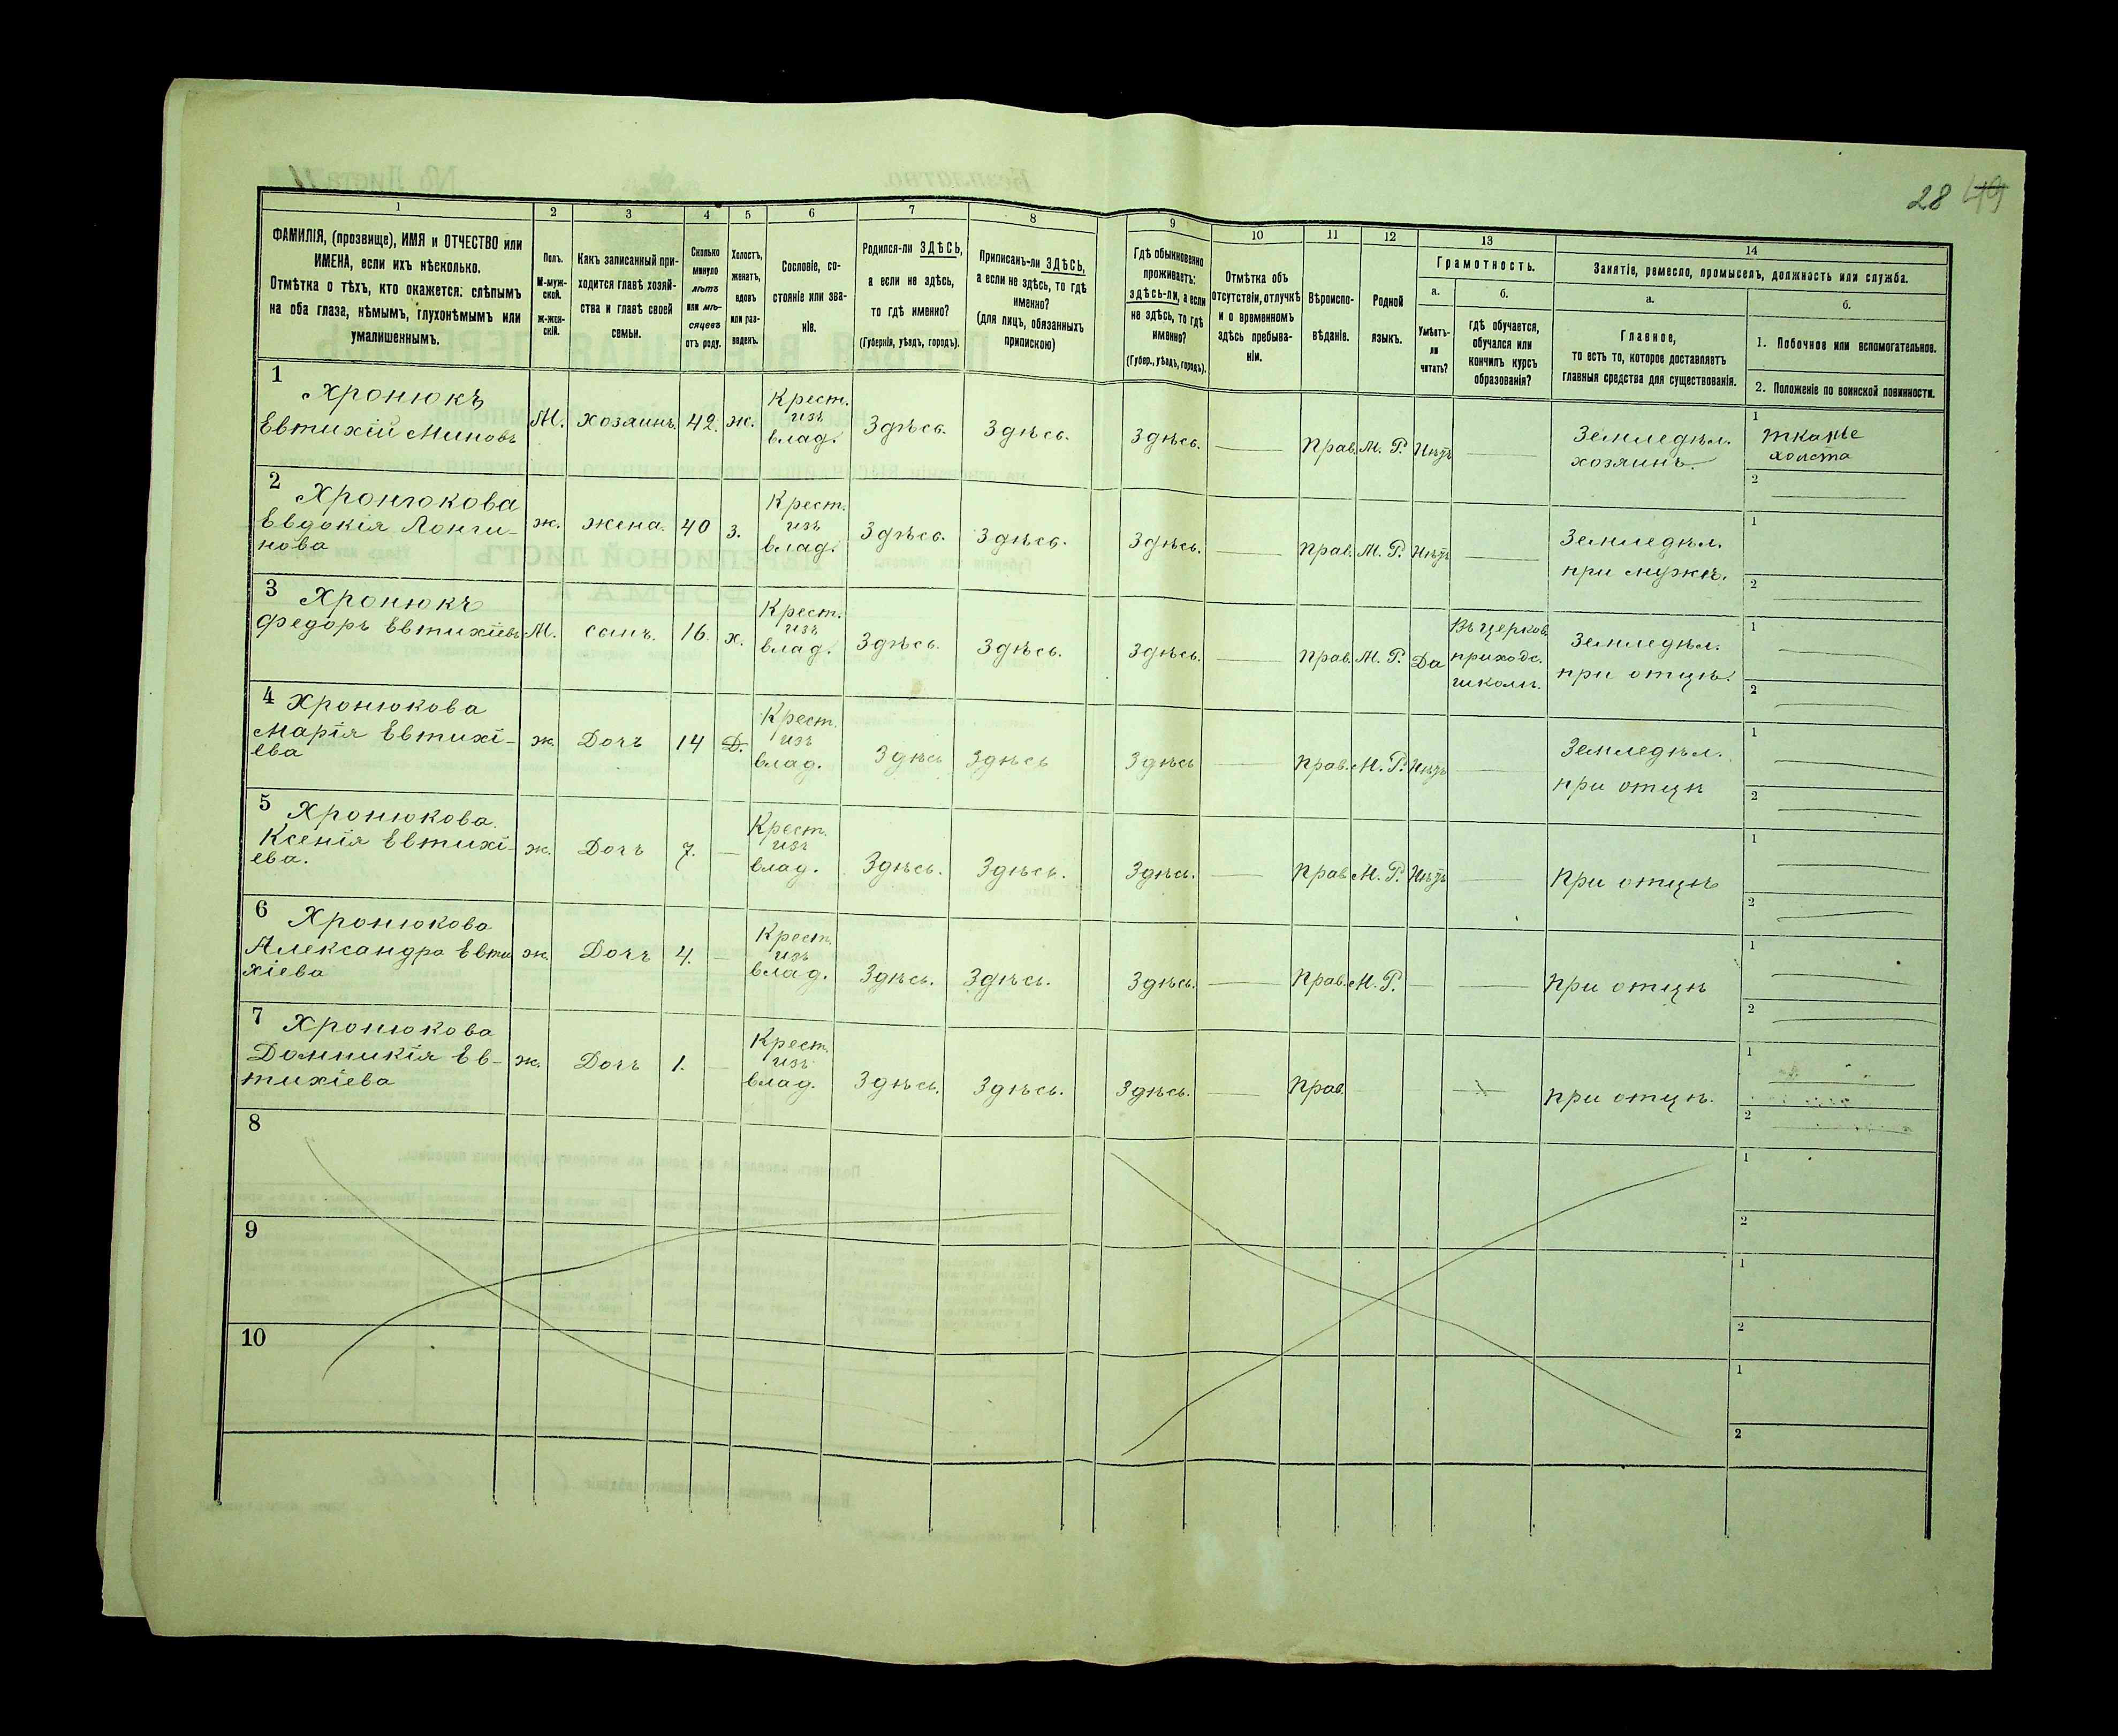 28 49
1
2
3
4
5
6
7
8
9
10
11
12
13
14
ФАМИЛІЯ, (прозвище), ИМЯ и ОТЧЕСТВО или
ИМЕНА, если ихъ нѣсколько.
Отмѣтка о тѣхъ, кто окажется: слѣпымъ
на оба глаза, нѣмымъ, глухонѣмымъ или
умалишеннымъ.
Полъ.
М-муж-
ской.
ж-жен-
скій.
Какъ записанный при-
ходится главѣ хозяй-
ства и главѣ своей
семьи.
Сколько
минуло
лѣтъ
или мѣ-
сяцевъ
отъ роду.
Холостъ,
женатъ,
вдовъ
или раз-
веденъ.
Сословіе, со-
стояніе или зва-
ніе.
Родился-ли ЗДѢСЬ,
а если не здѣсь,
то гдѣ именно?
(Губернія, уѣздъ, городъ).
Приписанъ-ли ЗДѢСЬ,
а если не здѣсь, то гдѣ
именно?
(для лицъ, обязанныхъ
припискою)
Гдѣ обыкновенно
проживаетъ:
здѣсь-ли, а если
не здѣсь, то гдѣ
именно?
(Губер., уѣздъ, городъ).
Отмѣтка объ
отсутствіи, отлучкѣ
и о временномъ
здѣсь пребыва-
ніи.
Вѣроиспо-
вѣданіе.
Родной
языкъ.
Грамотность.
а.
Умѣетъ-
ли
читать?
б.
гдѣ обучается,
обучался или
кончилъ курсъ
образованія?
Занятіе, ремесло, промыселъ, должность или служба.
а.
Главное,
то есть то, которое доставляетъ
главныя средства для существованія.
б.
1. Побочное или вспомогательное.
2. Положеніе по воинской повинности.
1
Хронюкъ
Евтихій Миновъ
М. хозяинъ. 42. ж.
Крест.
изъ
влад.
Здѣсь. Здѣсь. Здѣсь. Прав. М. Р. Нѣтъ
Земледѣл.
хозяинъ.
1
тканье
холста
2
2
Хронюкова
Евдокія Лонги-
нова
ж. жена. 40 з.
Крест.
изъ
влад.
Здѣсь. Здѣсь. Здѣсь. Прав. М. Р. Нѣтъ
Земледѣл.
при мужѣ.
1
2
3
Хронюкъ
Федоръ Евтихіевъ
М. сынъ. 16. х.
Крест.
изъ
влад.
Здѣсь. Здѣсь. Здѣсь. Прав. М. Р. Да
Въ церков.
приходс.
школѣ.
Земледѣл.
при отцѣ.
1
2
4
Хронюкова
Марія Евтихі-
ева
ж. Дочь 14 Д.
Крест.
изъ
влад.
Здѣсь Здѣсь Здѣсь Прав. М. Р. Нѣтъ
Земледѣл.
при отцѣ
1
2
5
Хронюкова.
Ксенія Евтихі-
ева.
ж. Дочь 7.
Крест.
изъ
влад.
Здѣсь. Здѣсь. Здѣсь. Прав. М. Р. Нѣтъ
При отцѣ
1
2
6
Хронюкова
Александра Евти
хіева
ж. Дочь 4.
Крест.
изъ
влад.
Здѣсь. Здѣсь. Здѣсь. Прав. М. Р.
При отцѣ
1
2
7
Хронюкова
Домникія Ев-
тихіева
ж. Дочь 1.
Крест.
изъ
влад.
Здѣсь. Здѣсь. Здѣсь. Прав.
При отцѣ.
1
2
8
1
2
9
1
2
10
1
2